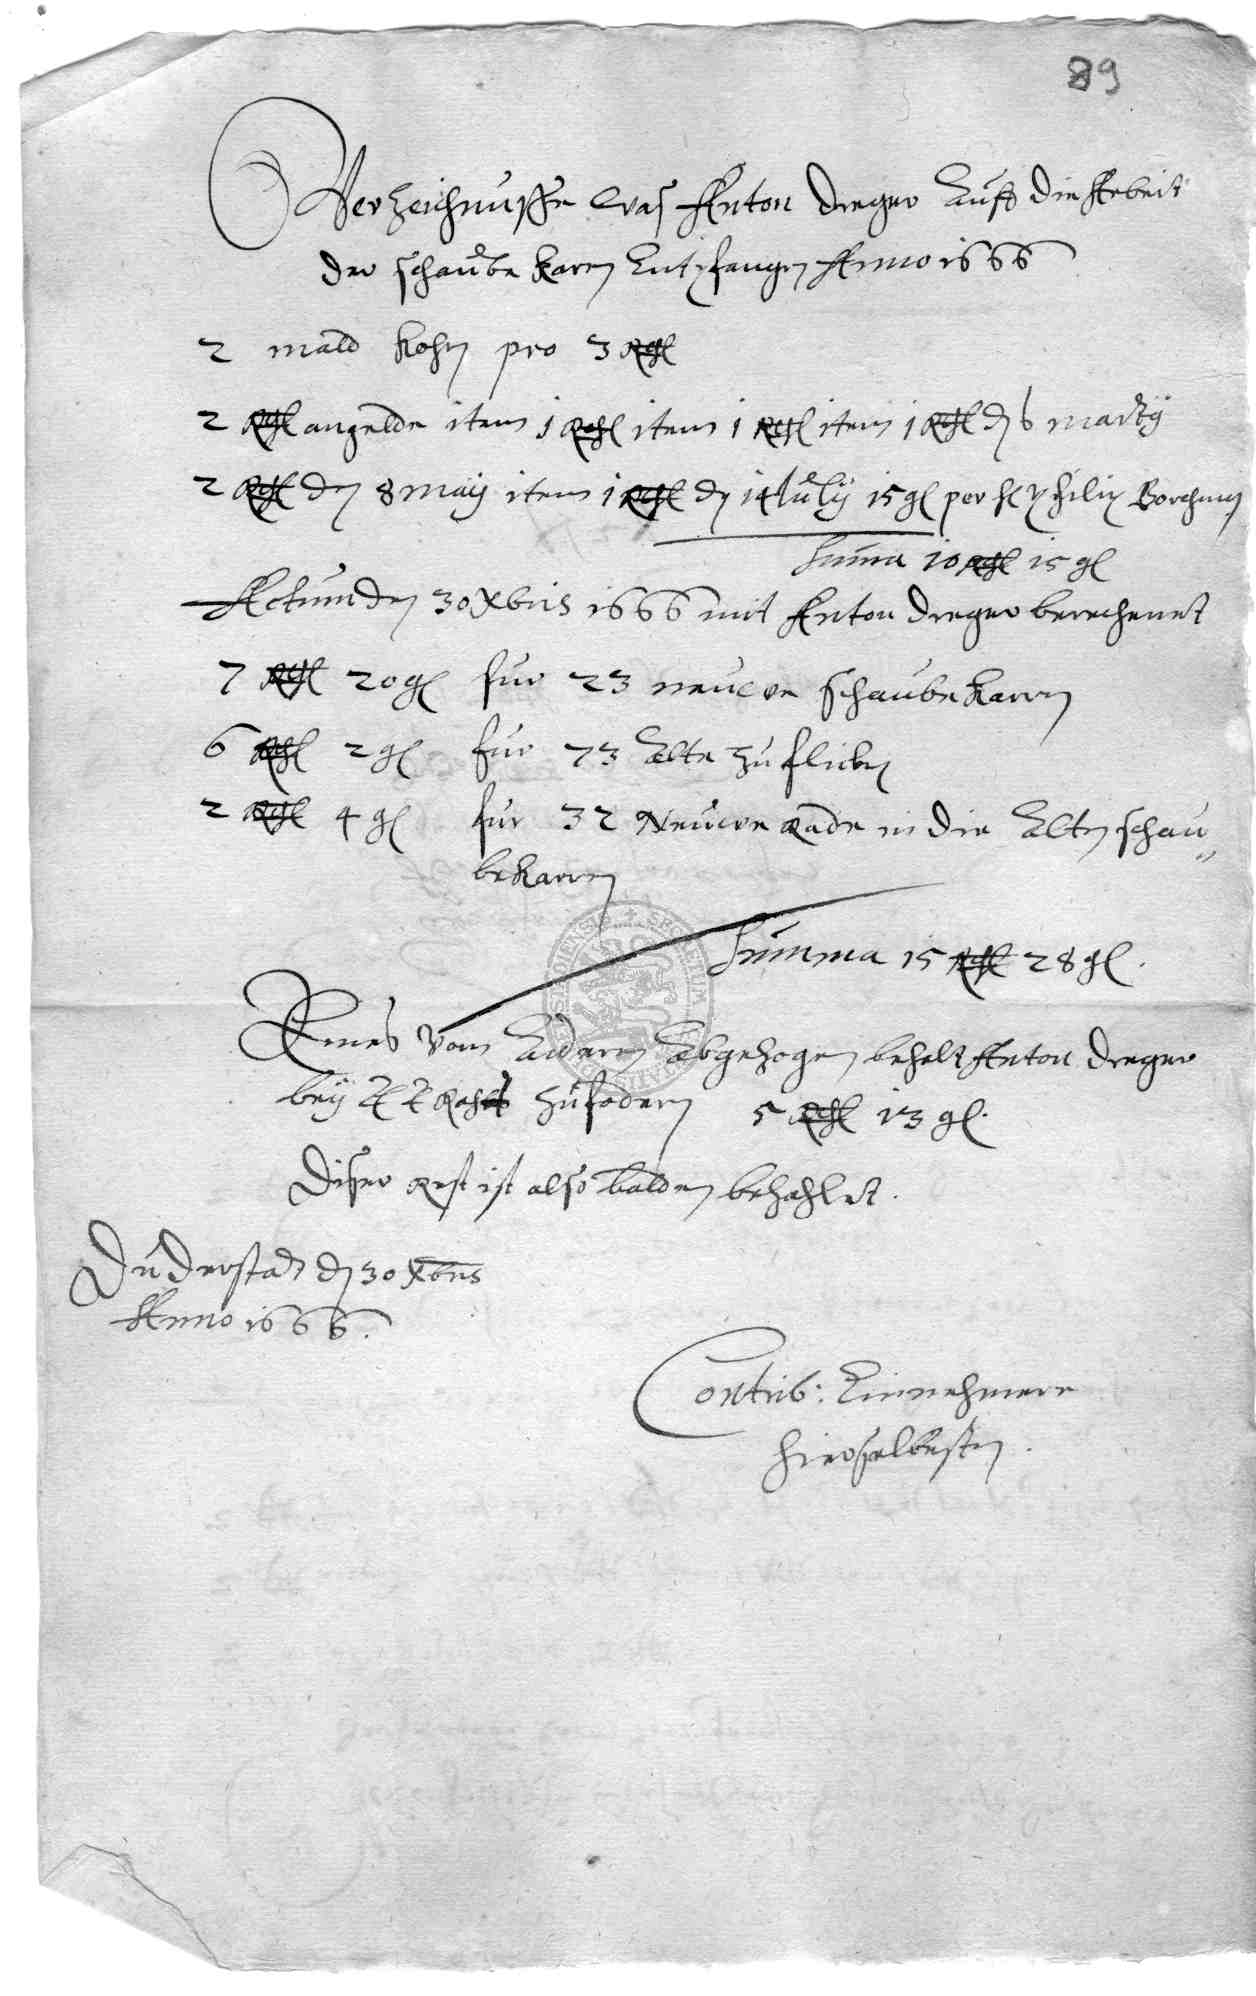 89
Verzeichnusse was Anton Dreger Auff die Arbeit
der schaube karen Entpfangen Anno 1666
2 mald kohrn pro 3 Rthl
2 Rthl angelde item 1 Rthl item 1 Rthl item 1 Rthl den 6 martij
2 Rthl den 8 maij item 1 Rthl den 14 Julij 15 gl per H philip Borchman
Summa 10 Rthl 15 gl
Actum den 30 Xbris 1666 mit Anton Dreger berechenet
7 Rthl 20 gl fur 23 neuwe schaubekarren
6 Rthl 2 gl fur 73 Alte zu flicken
2 Rthl 4 gl fur 32 Neuwe Rade in die Alten schau"
bekarren
Summa 15 Rthl 28 gl.
Eines vom Andern Abgezogen behelt Anton Dreger
bey zu fodern 5 Rthl 13 gl.
Diser Rest ist also balden bezahlet.
Duderstadt den 30 Xbris
Anno 1666.
Contrib: Einnehmere
hierselbesten.